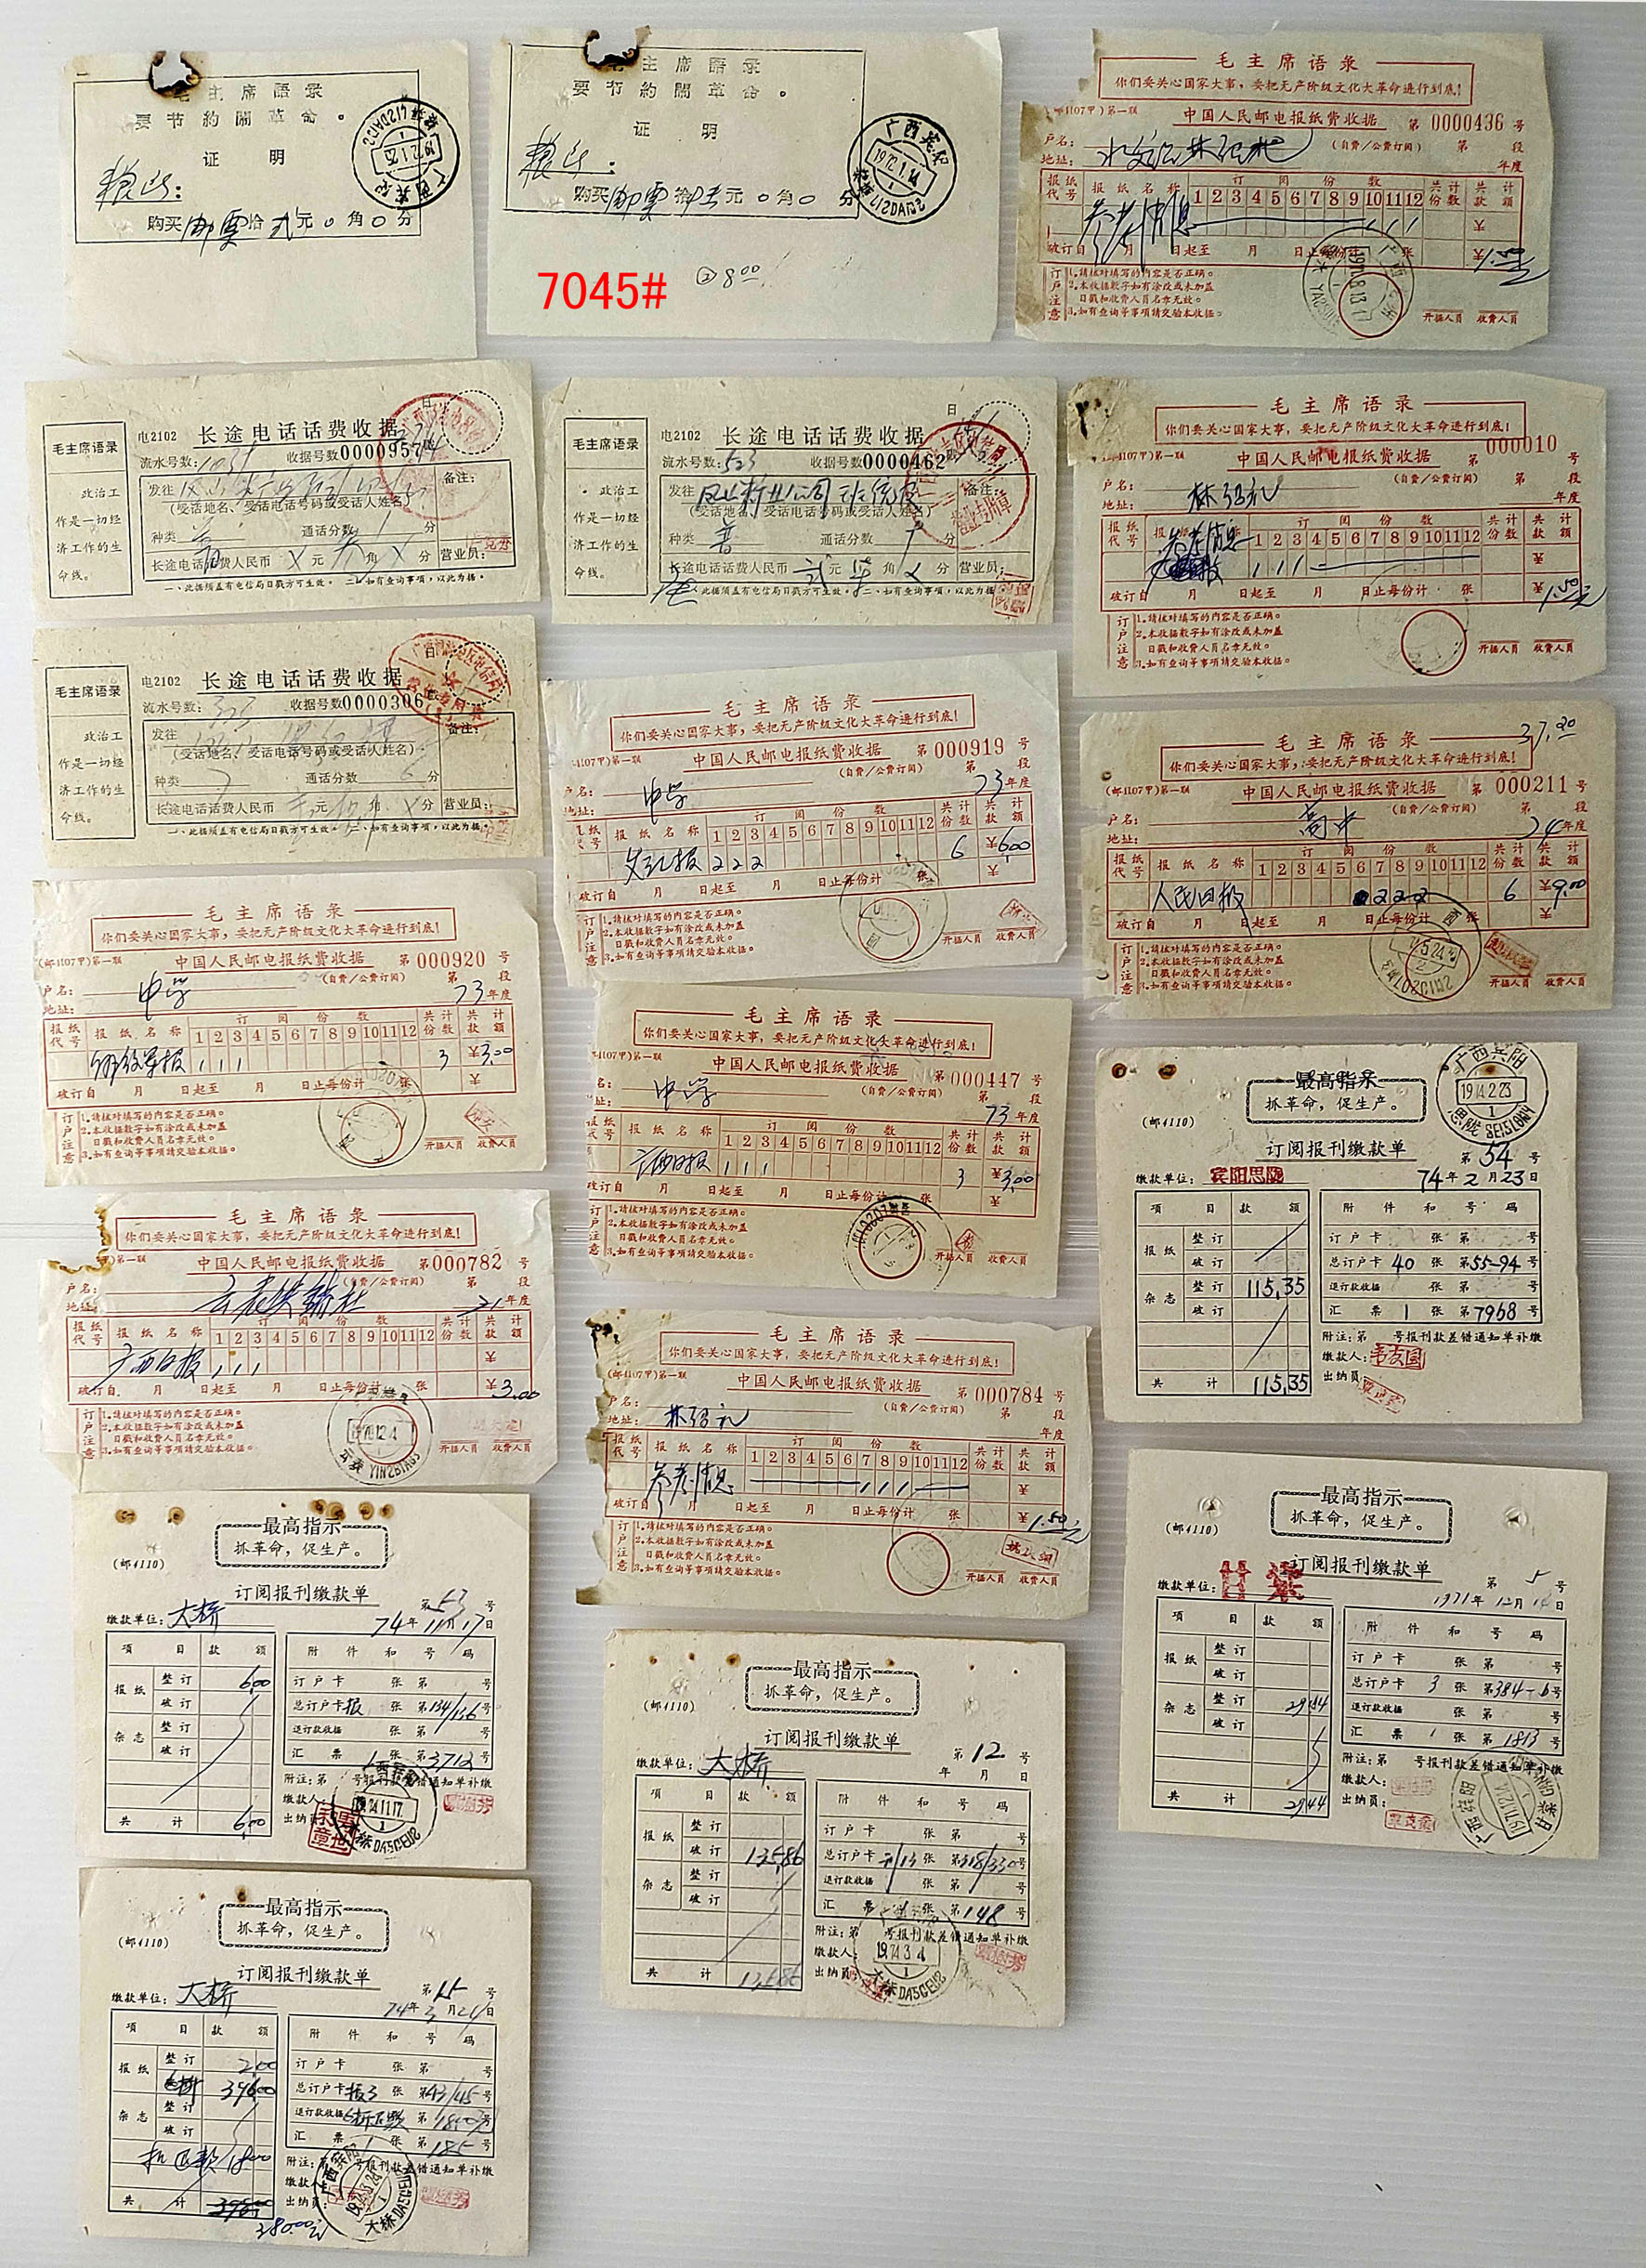 毛主席语录
要节約閙革命。
证 明
粮所:
购买邮票拾弍元0角0分
广西宾阳
1972.1.25
毛主席語录
要节約閙革命。
证 明
粮所:
购买邮票 元0角0分
广西宾阳
1972.1.14
7045#
②8.00
毛主席语录
你们要关心国家大事，要把无产阶级文化大革命进行到底!
中国人民邮电报纸费收据 第0000436号
户名:
(自费/公费订阅) 第 段
地址: 年度
报纸代号 报纸名称 订阅份数 共计份数 共计款额
1 2 3 4 5 6 7 8 9 10 11 12
参考消息 1 1 1
破订自 月 日起至 月 日止每份计 张 1.50元
订户注意
1.请核对填写的内容是否正确。
2.本收据数字如有涂改或未加盖
日戳和收费人员名章无效。
3.如有查询等事项请交验本收据。
开据人员 收费人员
毛主席语录
政治工
作是一切经
济工作的生
命线。
电2102 长途电话话费收据
流水号数: 收据号数0000957
发往
(受话地名、受话电话号码或受话人姓名)
备注:
种类 普 通话分数 分
长途电话话费人民币 元 角 分 营业员:
一、此据须盖有电信局日戳方可生效。二、如有查询事项，以此为据。
毛主席语录
政治工
作是一切经
济工作的生
命线。
电2102 长途电话话费收据
流水号数:523 收据号数0000462
发往
(受话地名、受话电话号码或受话人姓名)
备注:
种类 普 通话分数 7 分
长途电话话费人民币 弍 元 角 分 营业员:
此据须盖有电信局日戳方可生效。二、如有查询事项，以此为据
毛主席语录
你们要关心国家大事，要把无产阶级文化大革命进行到底!
(邮4107甲)第一联 中国人民邮电报纸费收据 第000010号
户名:
(自费/公费订阅) 第 段
地址: 林绍礼 年度
报纸代号 报纸名称 订阅份数 共计份数 共计款额
1 2 3 4 5 6 7 8 9 10 11 12
参考消息 1 1 1
破订自 月 日起至 月 日止每份计 张 1.50元
订户注意
1.请核对填写的内容是否正确。
2.本收据数字如有涂改或未加盖
日戳和收费人员名章无效。
3.如有查询等事项请交验本收据。
开据人员 收费人员
毛主席语录
政治工
作是一切经
济工作的生
命线。
电2102 长途电话话费收据
流水号数:323 收据号数0000306
发往
(受话地名、受话电话号码或受话人姓名)
备注:
种类 通话分数 6 分
长途电话话费人民币 元 角 分 营业员:
一、此据须盖有电信局日戳方可生效。二、如有查询事项，以此为据。
毛主席语录
你们要关心国家大事，要把无产阶级文化大革命进行到底!
4107甲)第一联 中国人民邮电报纸费收据 第000919号
户名: 中学
(自费/公费订阅) 第 段
地址: 73年度
报纸名称 订阅份数 共计份数 共计款额
1 2 3 4 5 6 7 8 9 10 11 12
文汇报 2 2 2 6 6.00
破订自 月 日起至 月 日止每份计 张
订户注意
1.请核对填写的内容是否正确。
2.本收据数字如有涂改或未加盖
日戳和收费人员名章无效。
3.如有查询等事项请交验本收据。
开据人员 收费人员
37.20
毛主席语录
你们要关心国家大事，要把无产阶级文化大革命进行到底!
(邮4107甲)第一联 中国人民邮电报纸费收据 第000211号
户名: 高中
(自费/公费订阅) 第 段
地址: 74年度
报纸代号 报纸名称 订阅份数 共计份数 共计款额
1 2 3 4 5 6 7 8 9 10 11 12
人民日报 2 2 2 6 9.00
破订自 月 日起至 月 日止每份计 张
订户注意
1.请核对填写的内容是否正确。
2.本收据数字如有涂改或未加盖
日戳和收费人员名章无效。
3.如有查询等事项请交验本收据。
开据人员 收费人员
毛主席语录
你们要关心国家大事，要把无产阶级文化大革命进行到底!
(邮4107甲)第一联 中国人民邮电报纸费收据 第000920号
户名: 中学
(自费/公费订阅) 第 段
地址: 73年度
报纸代号 报纸名称 订阅份数 共计份数 共计款额
1 2 3 4 5 6 7 8 9 10 11 12
解放军报 1 1 1 3 3.00
破订自 月 日起至 月 日止每份计 张
订户注意
1.请核对填写的内容是否正确。
2.本收据数字如有涂改或未加盖
日戳和收费人员名章无效。
3.如有查询等事项请交验本收据。
开据人员 收费人员
毛主席语录
你们要关心国家大事，要把无产阶级文化大革命进行到底!
4107甲)第一联 中国人民邮电报纸费收据 第000447号
名: 中学
(自费/公费订阅) 第 段
址: 73年度
报纸代号 报纸名称 订阅份数 共计份数 共计款额
1 2 3 4 5 6 7 8 9 10 11 12
广西日报 1 1 1 3 3.00
破订自 月 日起至 月 日止每份计 张
订户注意
1.请核对填写的内容是否正确。
2.本收据数字如有涂改或未加盖
日戳和收费人员名章无效。
3.如有查询等事项请交验本收据。
开据人员 收费人员
广西宾阳
1974.2.23
思陇
最高指示
抓革命，促生产。
(邮4110)
订阅报刊缴款单 第54号
缴款单位: 宾阳思陇 74年2月23日
项目 款额 附件和号码
报纸 整订 订户卡 张 第 号
破订 总订户卡 40 张 第55-94号
杂志 整订 115.35 退订款收据 张 第 号
破订 汇票 1 张 第7968号
附注:第 号报刊款差错通知单补缴
缴款人:
共计 115.35 出纳员:
毛主席语录
你们要关心国家大事，要把无产阶级文化大革命进行到底!
)第一联 中国人民邮电报纸费收据 第000782号
户名:
(自费/公费订阅) 第 段
地址: 云表供销社 71年度
报纸代号 报纸名称 订阅份数 共计份数 共计款额
1 2 3 4 5 6 7 8 9 10 11 12
广西日报 1 1 1
破订自 月 日起至 月 日止每份计 张 3.00
订户注意
1.请核对填写的内容是否正确。
2.本收据数字如有涂改或未加盖
日戳和收费人员名章无效。
3.如有查询等事项请交验本收据。
开据人员 收费人员
云表 YINZBIAOJ
毛主席语录
你们要关心国家大事，要把无产阶级文化大革命进行到底!
(邮4107甲)第一联 中国人民邮电报纸费收据 第000784号
户名:
(自费/公费订阅) 第 段
地址: 林绍礼 年度
报纸代号 报纸名称 订阅份数 共计份数 共计款额
1 2 3 4 5 6 7 8 9 10 11 12
参考消息 1 1 1
破订自 月 日起至 月 日止每份计 张 1.50元
订户注意
1.请核对填写的内容是否正确。
2.本收据数字如有涂改或未加盖
日戳和收费人员名章无效。
3.如有查询等事项请交验本收据。
开据人员 收费人员
最高指示
抓革命，促生产。
(邮4110)
订阅报刊缴款单 第53号
缴款单位: 大桥 74年11月17日
项目 款额 附件和号码
报纸 整订 6.00 订户卡 张 第 号
破订 总订户卡 报 张 第134/136号
杂志 整订 退订款收据 张 第 号
破订 汇票 1 张 第3712号
附注:第 号报刊款差错通知单补缴
缴款人:
共计 6.00 出纳员:
1974.11.17.
大桥DASGEUZ
最高指示
抓革命，促生产。
(邮4110)
订阅报刊缴款单 第12号
缴款单位: 大桥 年 月 日
项目 款额 附件和号码
报纸 整订 订户卡 张 第 号
破订 135.86 总订户卡 张 第318/330号
杂志 整订 退订款收据 张 第 号
破订 汇票 1 张 第148号
附注:第 号报刊款差错通知单补缴
缴款人:
共计 135.86 出纳员:
1974.3.4
大桥DASGEUZ
最高指示
抓革命，促生产。
(邮4110)
订阅报刊缴款单 第5号
缴款单位: 甘棠 1971年12月14日
项目 款额 附件和号码
报纸 整订 订户卡 张 第 号
破订 总订户卡 3 张 第384-6号
杂志 整订 29.44 退订款收据 张 第 号
破订 汇票 1 张 第1813号
附注:第 号报刊款差错通知单补缴
缴款人:
共计 29.44 出纳员:
最高指示
抓革命，促生产。
(邮4110)
订阅报刊缴款单 第15号
缴款单位: 大桥 74年3月24日
项目 款额 附件和号码
报纸 整订 2.00 订户卡 张 第 号
396.00 总订户卡 报3 张 第43/45号
杂志 整订 退订款收据 第18.00元号
破订 汇票 1 张 第185号
扣退款 18.00 附注:第 号报刊款差错通知单补缴
缴款人:
共计 398.00 出纳员:
380.00元
广西宾阳
大桥DASGEUZ